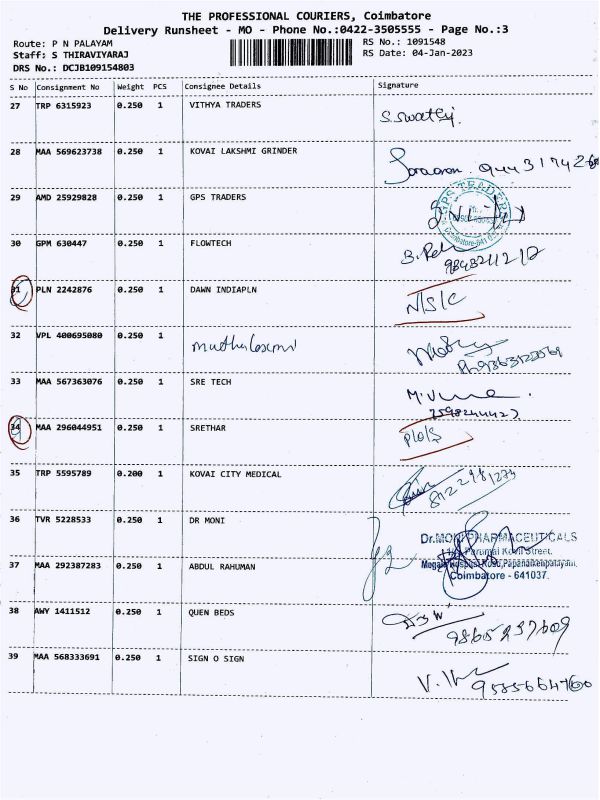 THE PROFESSIONAL COURIERS, Coimbatore
Delivery Runsheet - MO - Phone No.:0422-3505555 - Page No.:3
Route: P N PALAYAM
RS No.: 1091548
Staff: S THIRAVIYARAJ
RS Date: 04-Jan-2023
DRS No.: DCJB109154803
S No Consignment No Weight PCS Consignee Details Signature
27 TRP 6315923 0.250 1 VITHYA TRADERS S. Swathy.
28 MAA 569623738 0.250 1 KOVAI LAKSHMI GRINDER
29 AMD 25929828 0.250 1 GPS TRADERS GPS TRADERS
30 GPM 630447 0.250 1 FLOWTECH
31 PLN 2242876 0.250 1 DAWN INDIAPLN N/S/C
32 VPL 400695080 0.250 1
33 MAA 567363076 0.250 1 SRE TECH
34 MAA 296044951 0.250 1 SRETHAR
35 TRP 5595789 0.200 1 KOVAI CITY MEDICAL
36 TVR 5228533 0.250 1 DR MONI
Dr.MONI PHARMACEUTICALS
Perumal Kovil Street,
37 MAA 292387283 0.250 1 ABDUL RAHUMAN
Coimbatore - 641037.
38 AWY 1411512 0.250 1 QUEN BEDS 9865237609
39 MAA 568333691 0.250 1 SIGN O SIGN